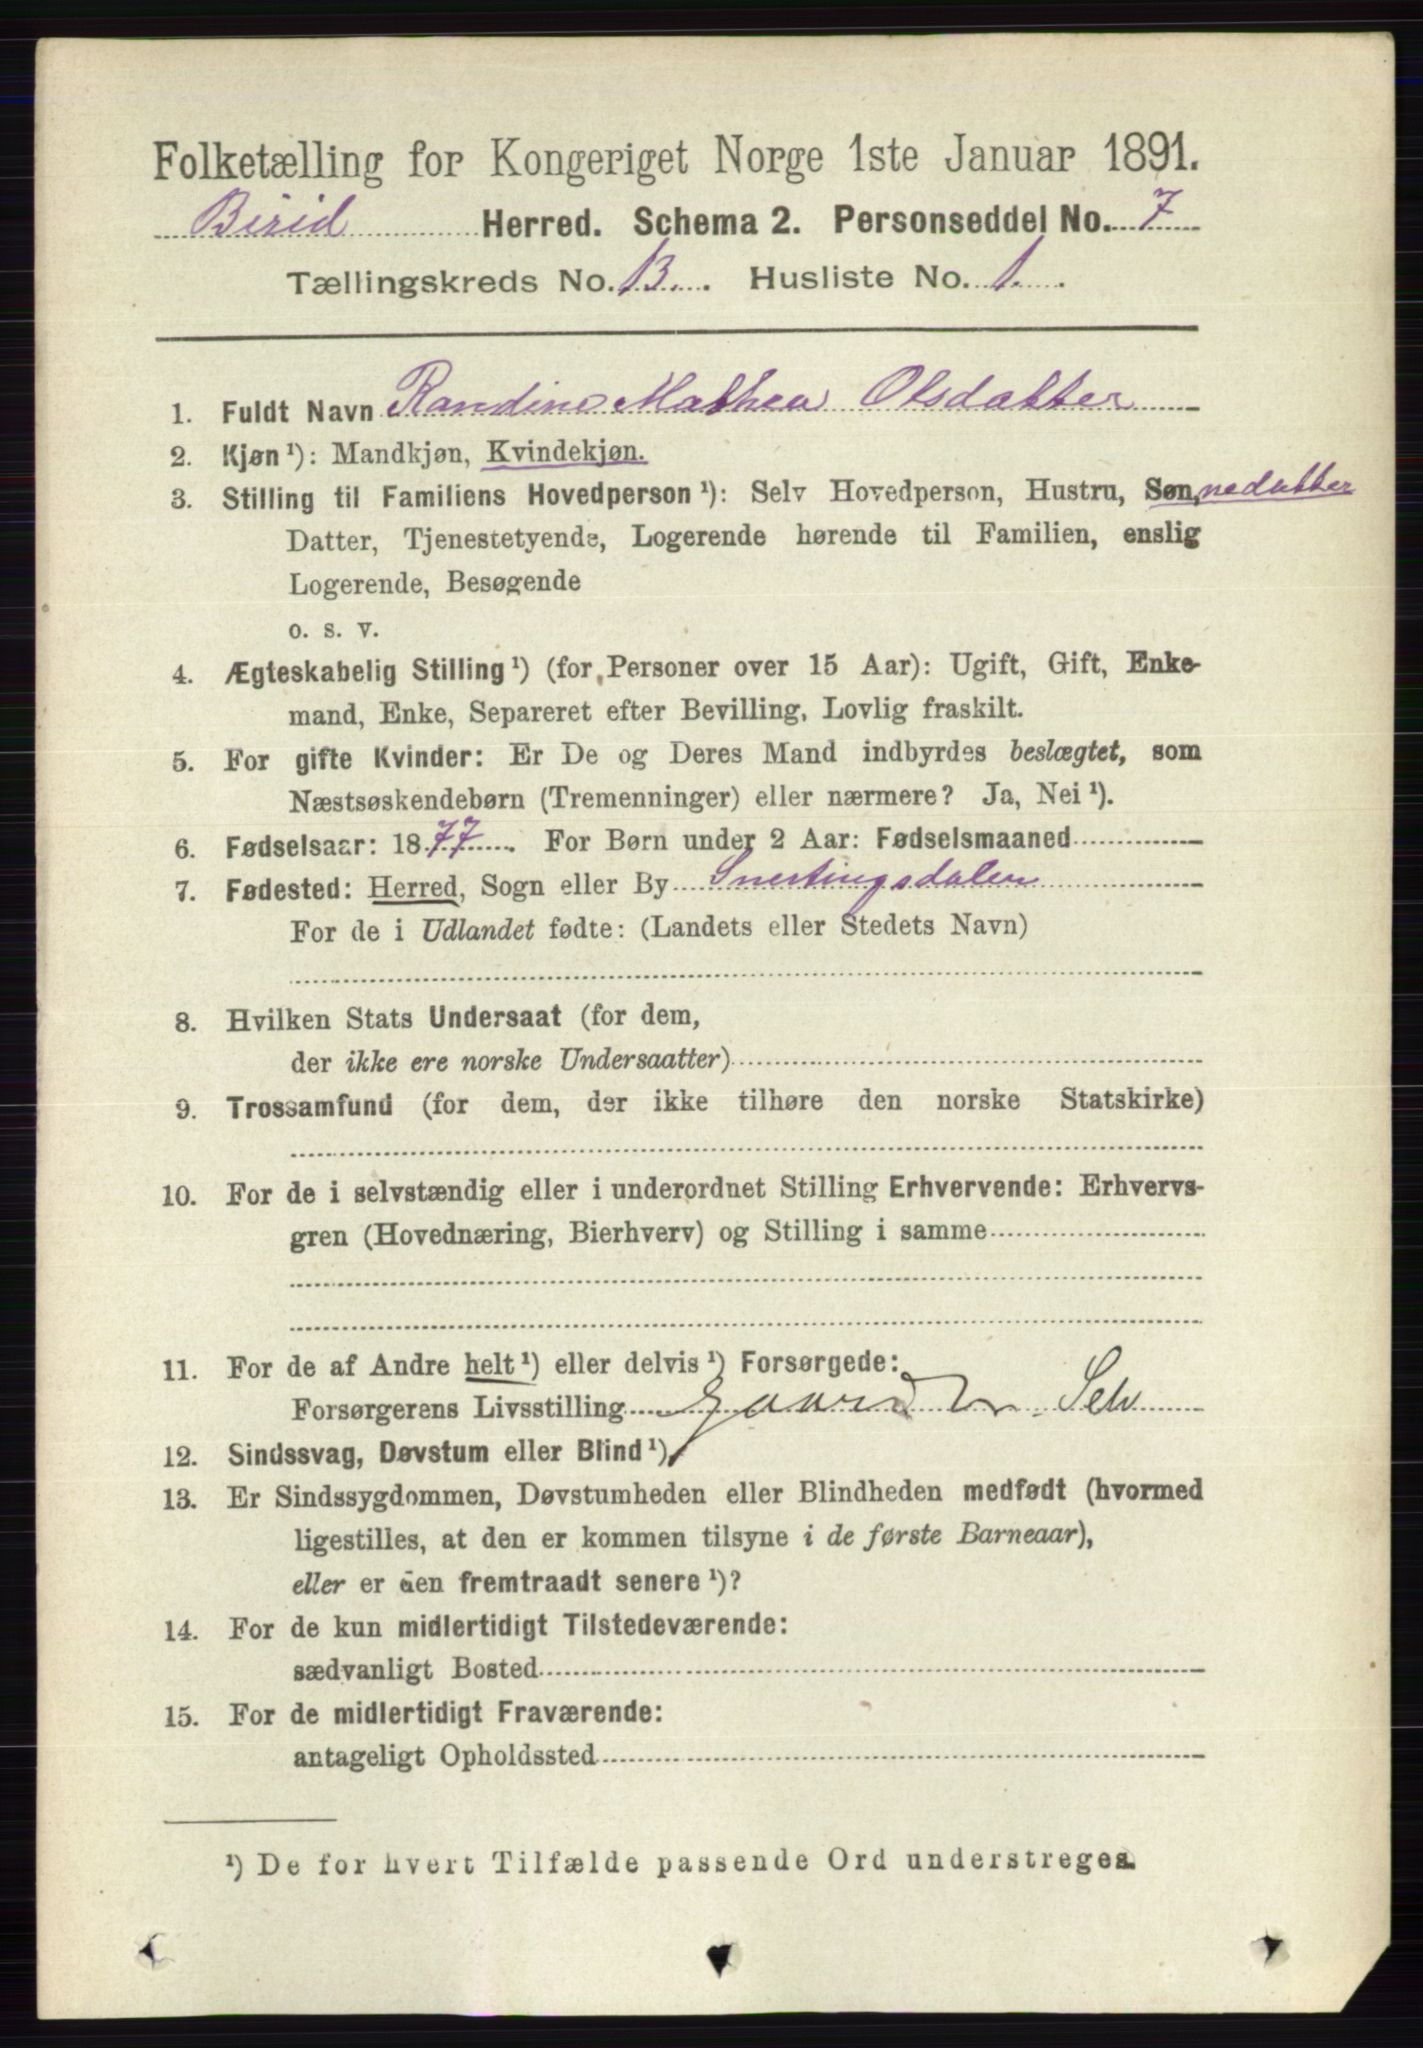 Folketælling for Kongeriget Norge 1ste Januar 1891.
Birid Herred. Schema 2. Personseddel No. 7
Tællingskreds No. 13. Husliste No. 1.
1. Fuldt Navn Randine Mathea Olsdatter
2. Kjøn ¹): Mandkjøn, Kvindekjøn.
3. Stilling til Familiens Hovedperson ¹): Selv Hovedperson, Hustru, Søn, nedatter
Datter, Tjenestetyende, Logerende hørende til Familien, enslig
Logerende, Besøgende
o. s. v.
4. Ægteskabelig Stilling ¹) (for Personer over 15 Aar): Ugift, Gift, Enke-
mand, Enke, Separeret efter Bevilling, Lovlig fraskilt.
5. For gifte Kvinder: Er De og Deres Mand indbyrdes beslægtet, som
Næstsøskendebørn (Tremenninger) eller nærmere? Ja, Nei ¹).
6. Fødselsaar: 1877. For Børn under 2 Aar: Fødselsmaaned
7. Fødested: Herred, Sogn eller By Snertingsdalen
For de i Udlandet fødte: (Landets eller Stedets Navn)
8. Hvilken Stats Undersaat (for dem,
der ikke ere norske Undersaatter)
9. Trossamfund (for dem, der ikke tilhøre den norske Statskirke)
10. For de i selvstændig eller i underordnet Stilling Erhvervende: Erhvervs-
gren (Hovednæring, Bierhverv) og Stilling i samme
11. For de af Andre helt ¹) eller delvis ¹) Forsørgede:
Forsørgerens Livsstilling Selv
12. Sindssvag, Døvstum eller Blind ¹),
13. Er Sindssygdommen, Døvstumheden eller Blindheden medfødt (hvormed
ligestilles, at den er kommen tilsyne i de første Barneaar),
eller er den fremtraadt senere ¹)?
14. For de kun midlertidigt Tilstedeværende:
sædvanligt Bosted
15. For de midlertidigt Fraværende:
antageligt Opholdssted
¹) De for hvert Tilfælde passende Ord understreges.